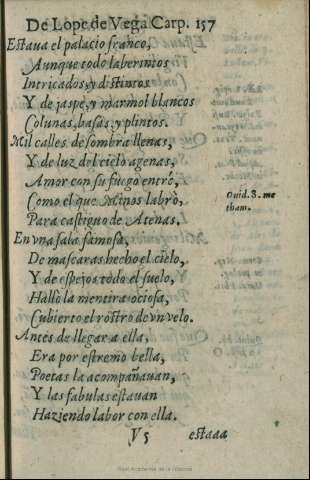 De Lope de Vega Carp. 157
Estaua el palacio franco,
Aunque todo laberintos
Intricados, y distintos
Y de jaspe, y marmol blancos
Colunas, basas, y plintos.
Mil calles de sombra llenas,
Y de luz del cielo agenas,
Amor con su fuego entrò,
Como el que Minos labrò,
Para castiguo de Atenas.
Ouid. 3. me
tham.
En vna sala famosa,
De mascaras hecho el cielo,
Y de espejos todo el suelo,
Hallò la mentira ociosa,
Cubierto el rostro de vn velo.
Antes de llegar a ella,
Era por estremo bella,
Poetas la acompañauan,
Y las fabulas estauan
Haziendo labor con ella.
V 5 estaua
Real Academia de la Historia